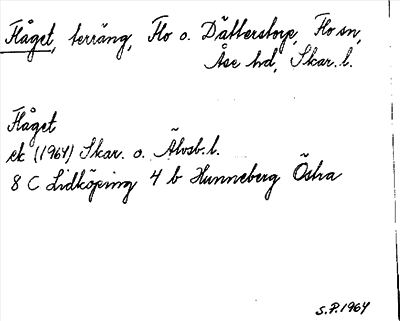 Flåget, terräng, Flo o. Dättestorp, Flo sn,
Åse hd, Skar. l.
Flåget
ek (1964) Skar. o. Älvsb. l.
8 C Lidköping 4 b Hunneberg Östra
S.P. 1964